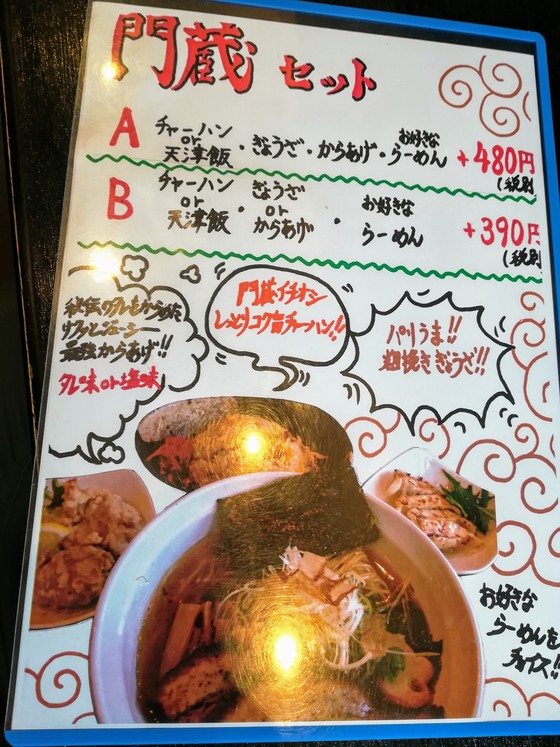 門蔵 セット
A チャーハン or 天津飯 ・ ぎょうざ ・ からあげ ・ お好きな らーめん +480円 (税別)
B チャーハン or 天津飯 ・ ぎょうざ or からあげ ・ お好きな らーめん +390円 (税別
秘伝のタレをからめた
サクッとジューシー
最強からあげ!!
タレ味or塩味
門蔵イチオシ
しっとりコク旨チャーハン!!
パリうま!!
粗挽きぎょうざ!!
お好きな
らーめんを
チョイス!!